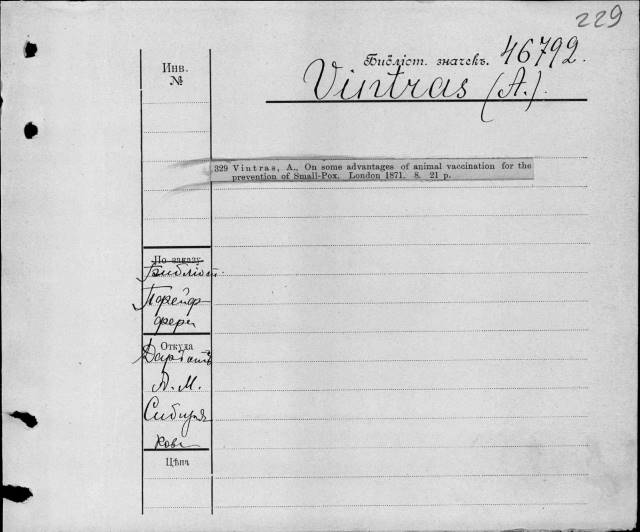 229
Библіот. значекъ. 46792.
Инв.
№
Vintras (A.).
329 Vintras, A., On some advantages of animal vaccination for the
prevention of Small-Pox. London 1871. 8. 21 p.
По заказу
Библіот.
Порейф
фери
Откуда
Даръ
А. М.
Сибиря
кова
Цѣна